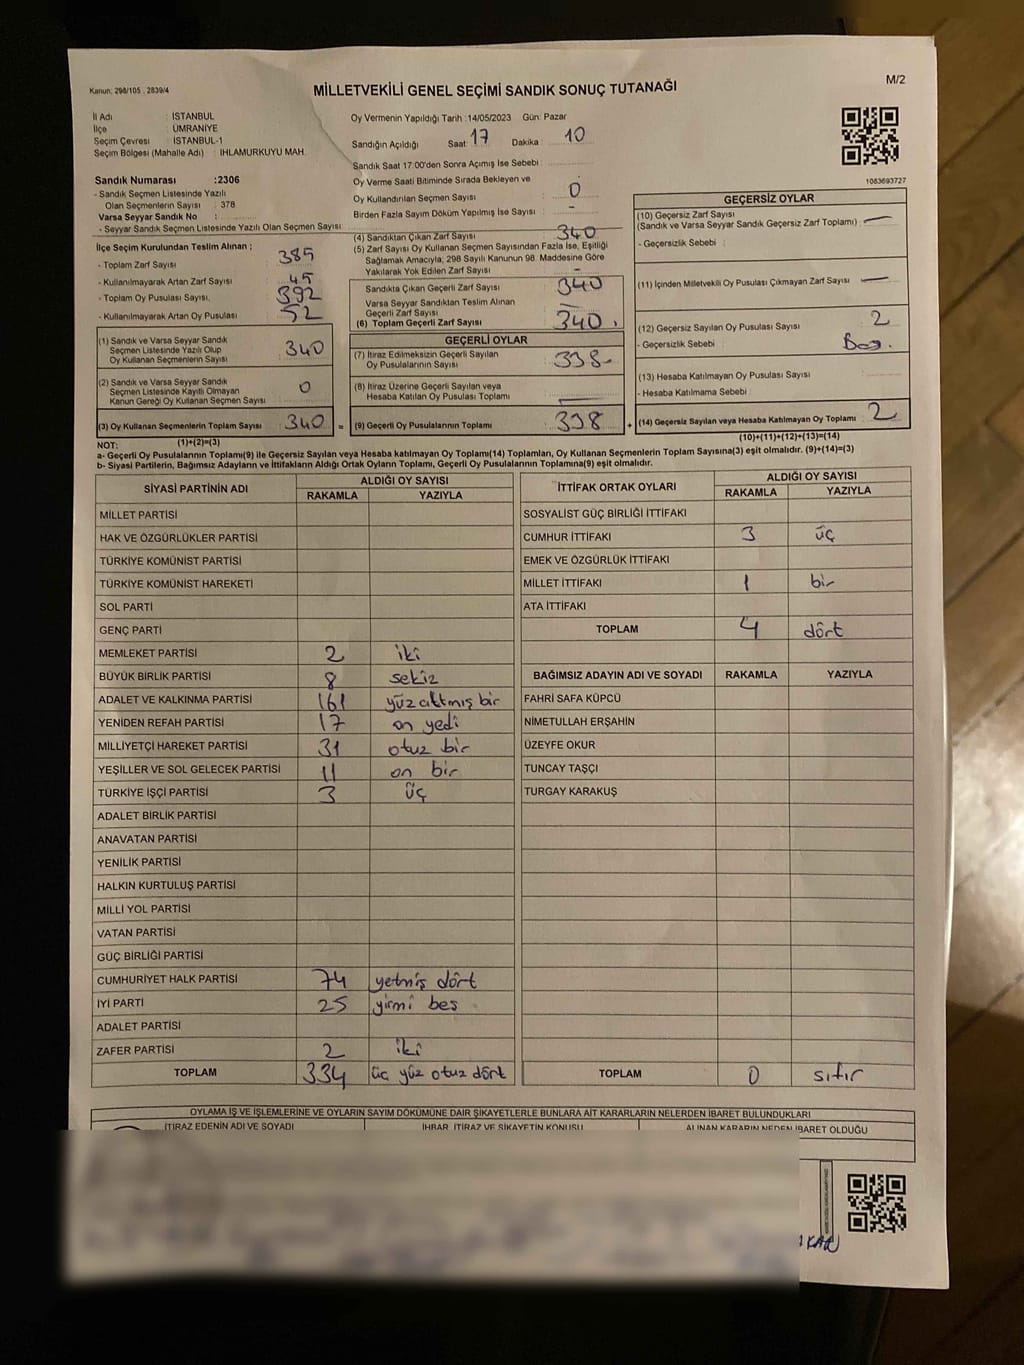 Kanun: 298/105 , 2839/4
MİLLETVEKİLİ GENEL SEÇİMİ SANDIK SONUÇ TUTANAĞI
M/2
İl Adı : İSTANBUL
İlçe : ÜMRANİYE
Seçim Çevresi : İSTANBUL-1
Seçim Bölgesi (Mahalle Adı) : IHLAMURKUYU MAH.
Sandık Numarası :2306
- Sandık Seçmen Listesinde Yazılı
Olan Seçmenlerin Sayısı : 378
Varsa Seyyar Sandık No :
- Seyyar Sandık Seçmen Listesinde Yazılı Olan Seçmen Sayısı :
Oy Vermenin Yapıldığı Tarih :14/05/2023 Gün: Pazar
Sandığın Açıldığı Saat: 17 Dakika : 10
Sandık Saat 17:00'den Sonra Açımış İse Sebebi :
Oy Verme Saati Bitiminde Sırada Bekleyen ve
Oy Kullandırılan Seçmen Sayısı : 0
Birden Fazla Sayım Döküm Yapılmış İse Sayısı : -
1083693727
İlçe Seçim Kurulundan Teslim Alınan ;
- Toplam Zarf Sayısı : 385
- Kullanılmayarak Artan Zarf Sayısı : 45
- Toplam Oy Pusulası Sayısı : 392
- Kullanılmayarak Artan Oy Pusulası : 52
(1) Sandık ve Varsa Seyyar Sandık
Seçmen Listesinde Yazılı Olup
Oy Kullanan Seçmenlerin Sayısı : 340
(2) Sandık ve Varsa Seyyar Sandık
Seçmen Listesinde Kayıtlı Olmayan
Kanun Gereği Oy Kullanan Seçmen Sayısı : 0
(3) Oy Kullanan Seçmenlerin Toplam Sayısı : 340
(1)+(2)=(3)
(4) Sandıktan Çıkan Zarf Sayısı : 340
(5) Zarf Sayısı Oy Kullanan Seçmen Sayısından Fazla İse, Eşitliği
Sağlamak Amacıyla; 298 Sayılı Kanunun 98. Maddesine Göre
Yakılarak Yok Edilen Zarf Sayısı : -
Sandıkta Çıkan Geçerli Zarf Sayısı : 340
Varsa Seyyar Sandıktan Teslim Alınan
Geçerli Zarf Sayısı : -
(6) Toplam Geçerli Zarf Sayısı : 340
GEÇERLİ OYLAR
(7) İtiraz Edilmeksizin Geçerli Sayılan
Oy Pusulalarının Sayısı : 338
(8) İtiraz Üzerine Geçerli Sayılan veya
Hesaba Katılan Oy Pusulası Toplamı : -
= (9) Geçerli Oy Pusulalarının Toplamı : 338
GEÇERSİZ OYLAR
(10) Geçersiz Zarf Sayısı
(Sandık ve Varsa Seyyar Sandık Geçersiz Zarf Toplamı) : -
- Geçersizlik Sebebi :
(11) İçinden Milletvekili Oy Pusulası Çıkmayan Zarf Sayısı : -
(12) Geçersiz Sayılan Oy Pusulası Sayısı : 2
- Geçersizlik Sebebi :
(13) Hesaba Katılmayan Oy Pusulası Sayısı :
- Hesaba Katılmama Sebebi :
+ (14) Geçersiz Sayılan veya Hesaba Katılmayan Oy Toplamı : 2
(10)+(11)+(12)+(13)=(14)
NOT:
a- Geçerli Oy Pusulalarının Toplamı(9) ile Geçersiz Sayılan veya Hesaba katılmayan Oy Toplamı(14) Toplamları, Oy Kullanan Seçmenlerin Toplam Sayısına(3) eşit olmalıdır. (9)+(14)=(3)
b- Siyasi Partilerin, Bağımsız Adayların ve İttifakların Aldığı Ortak Oyların Toplamı, Geçerli Oy Pusulalarının Toplamına(9) eşit olmalıdır.
SİYASİ PARTİNİN ADI ALDIĞI OY SAYISI
RAKAMLA YAZIYLA
MİLLET PARTİSİ
HAK VE ÖZGÜRLÜKLER PARTİSİ
TÜRKİYE KOMÜNİST PARTİSİ
TÜRKİYE KOMÜNİST HAREKETİ
SOL PARTİ
GENÇ PARTİ
MEMLEKET PARTİSİ 2 iki
BÜYÜK BİRLİK PARTİSİ 8 sekiz
ADALET VE KALKINMA PARTİSİ 161 yüz altmış bir
YENİDEN REFAH PARTİSİ 17 on yedi
MİLLİYETÇİ HAREKET PARTİSİ 31 otuz bir
YEŞİLLER VE SOL GELECEK PARTİSİ 11 on bir
TÜRKİYE İŞÇİ PARTİSİ 3 üç
ADALET BİRLİK PARTİSİ
ANAVATAN PARTİSİ
YENİLİK PARTİSİ
HALKIN KURTULUŞ PARTİSİ
MİLLİ YOL PARTİSİ
VATAN PARTİSİ
GÜÇ BİRLİĞİ PARTİSİ
CUMHURİYET HALK PARTİSİ 74 yetmiş dört
İYİ PARTİ 25 yirmi beş
ADALET PARTİSİ
ZAFER PARTİSİ 2 iki
TOPLAM 334 üç yüz otuz dört
İTTİFAK ORTAK OYLARI ALDIĞI OY SAYISI
RAKAMLA YAZIYLA
SOSYALİST GÜÇ BİRLİĞİ İTTİFAKI
CUMHUR İTTİFAKI 3 üç
EMEK VE ÖZGÜRLÜK İTTİFAKI
MİLLET İTTİFAKI 1 bir
ATA İTTİFAKI
TOPLAM 4 dört
BAĞIMSIZ ADAYIN ADI VE SOYADI RAKAMLA YAZIYLA
FAHRİ SAFA KÜPCÜ
NİMETULLAH ERŞAHİN
ÜZEYFE OKUR
TUNCAY TAŞÇI
TURGAY KARAKUŞ
TOPLAM 0 sıfır
OYLAMA İŞ VE İŞLEMLERİNE VE OYLARIN SAYIM DÖKÜMÜNE DAİR ŞİKAYETLERLE BUNLARA AİT KARARLARIN NELERDEN İBARET BULUNDUKLARI
İTİRAZ EDENİN ADI VE SOYADI İHBAR, İTİRAZ VE ŞİKAYETİN KONUSU ALINAN KARARIN NEDEN İBARET OLDUĞU